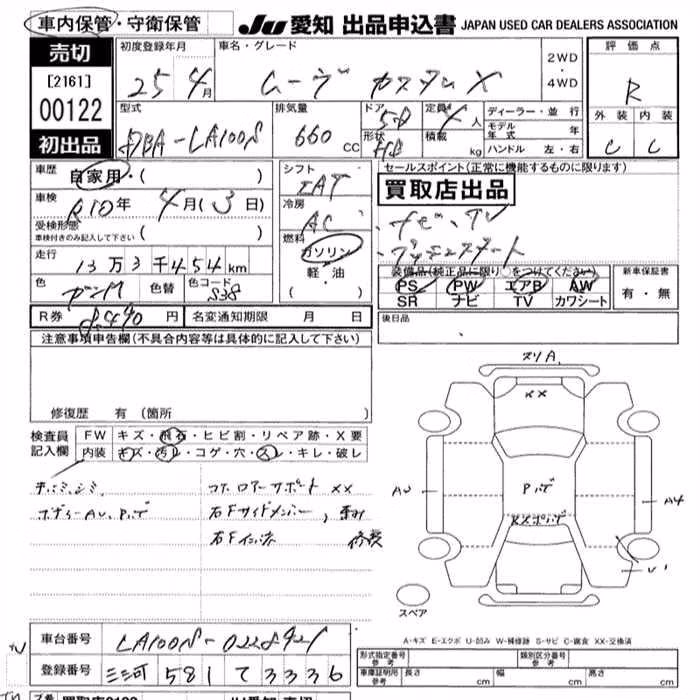 車内保管・守衛保管
JU 愛知 出品申込書 JAPAN USED CAR DEALERS ASSOCIATION
売切
[2161]
00122
初出品
初度登録年月
25 4月
車名・グレード
ムーヴ カスタム X
2WD
・
4WD
評価点
R
外装 内装
C C
型式
DBA-LA100S
排気量
660 cc
ドア
5D
形状
HB
定員
4人
積載
kg
ディーラー・並行
モデル年式 年
ハンドル 左・右
車歴
自家用・( )
車検
R10年 4月(3日)
受検形態
車検付きのみ記入して下さい ( )
走行
13万3千454km
色
ガンM
色替
色コード
S38
シフト
IAT
冷房
AC
燃料
ガソリン
軽・油
・( )
セールスポイント(正常に機能するものに限ります)
買取店出品
・ナビ、TV
・プッシュスタート
装備品(純正品に限り○をつけてください)
PS PW エアB AW
SR ナビ TV カワシート
新車保証書
有・無
R券 8,490円
名変通知期限 月 日
後日品
注意事項申告欄(不具合内容等は具体的に記入して下さい)
修復歴 有(箇所 )
検査員記入欄
FW キズ・飛石・ヒビ割・リペア跡・X要
内装 キズ・汚レ・コゲ・穴・スレ・キレ・破レ
コア、ロアーサポート XX
ボディーAU、Pハゲ
右Fサイドメンバー、
右Fインナー 修複
スリA
XX
AU
Pハゲ
XXポハゲ
A4
U1
スペア
A-キズ E-エクボ U-凹み W-補修跡 S-サビ C-腐食 XX-交換済
車台番号 LA100S-0228421
登録番号 三三河 581 て 3336
形式指定番号
参考
類別区分番号
参考
車庫証明用
参考
長さ cm 幅 cm 高さ cm
買取店0122
JU愛知 売切